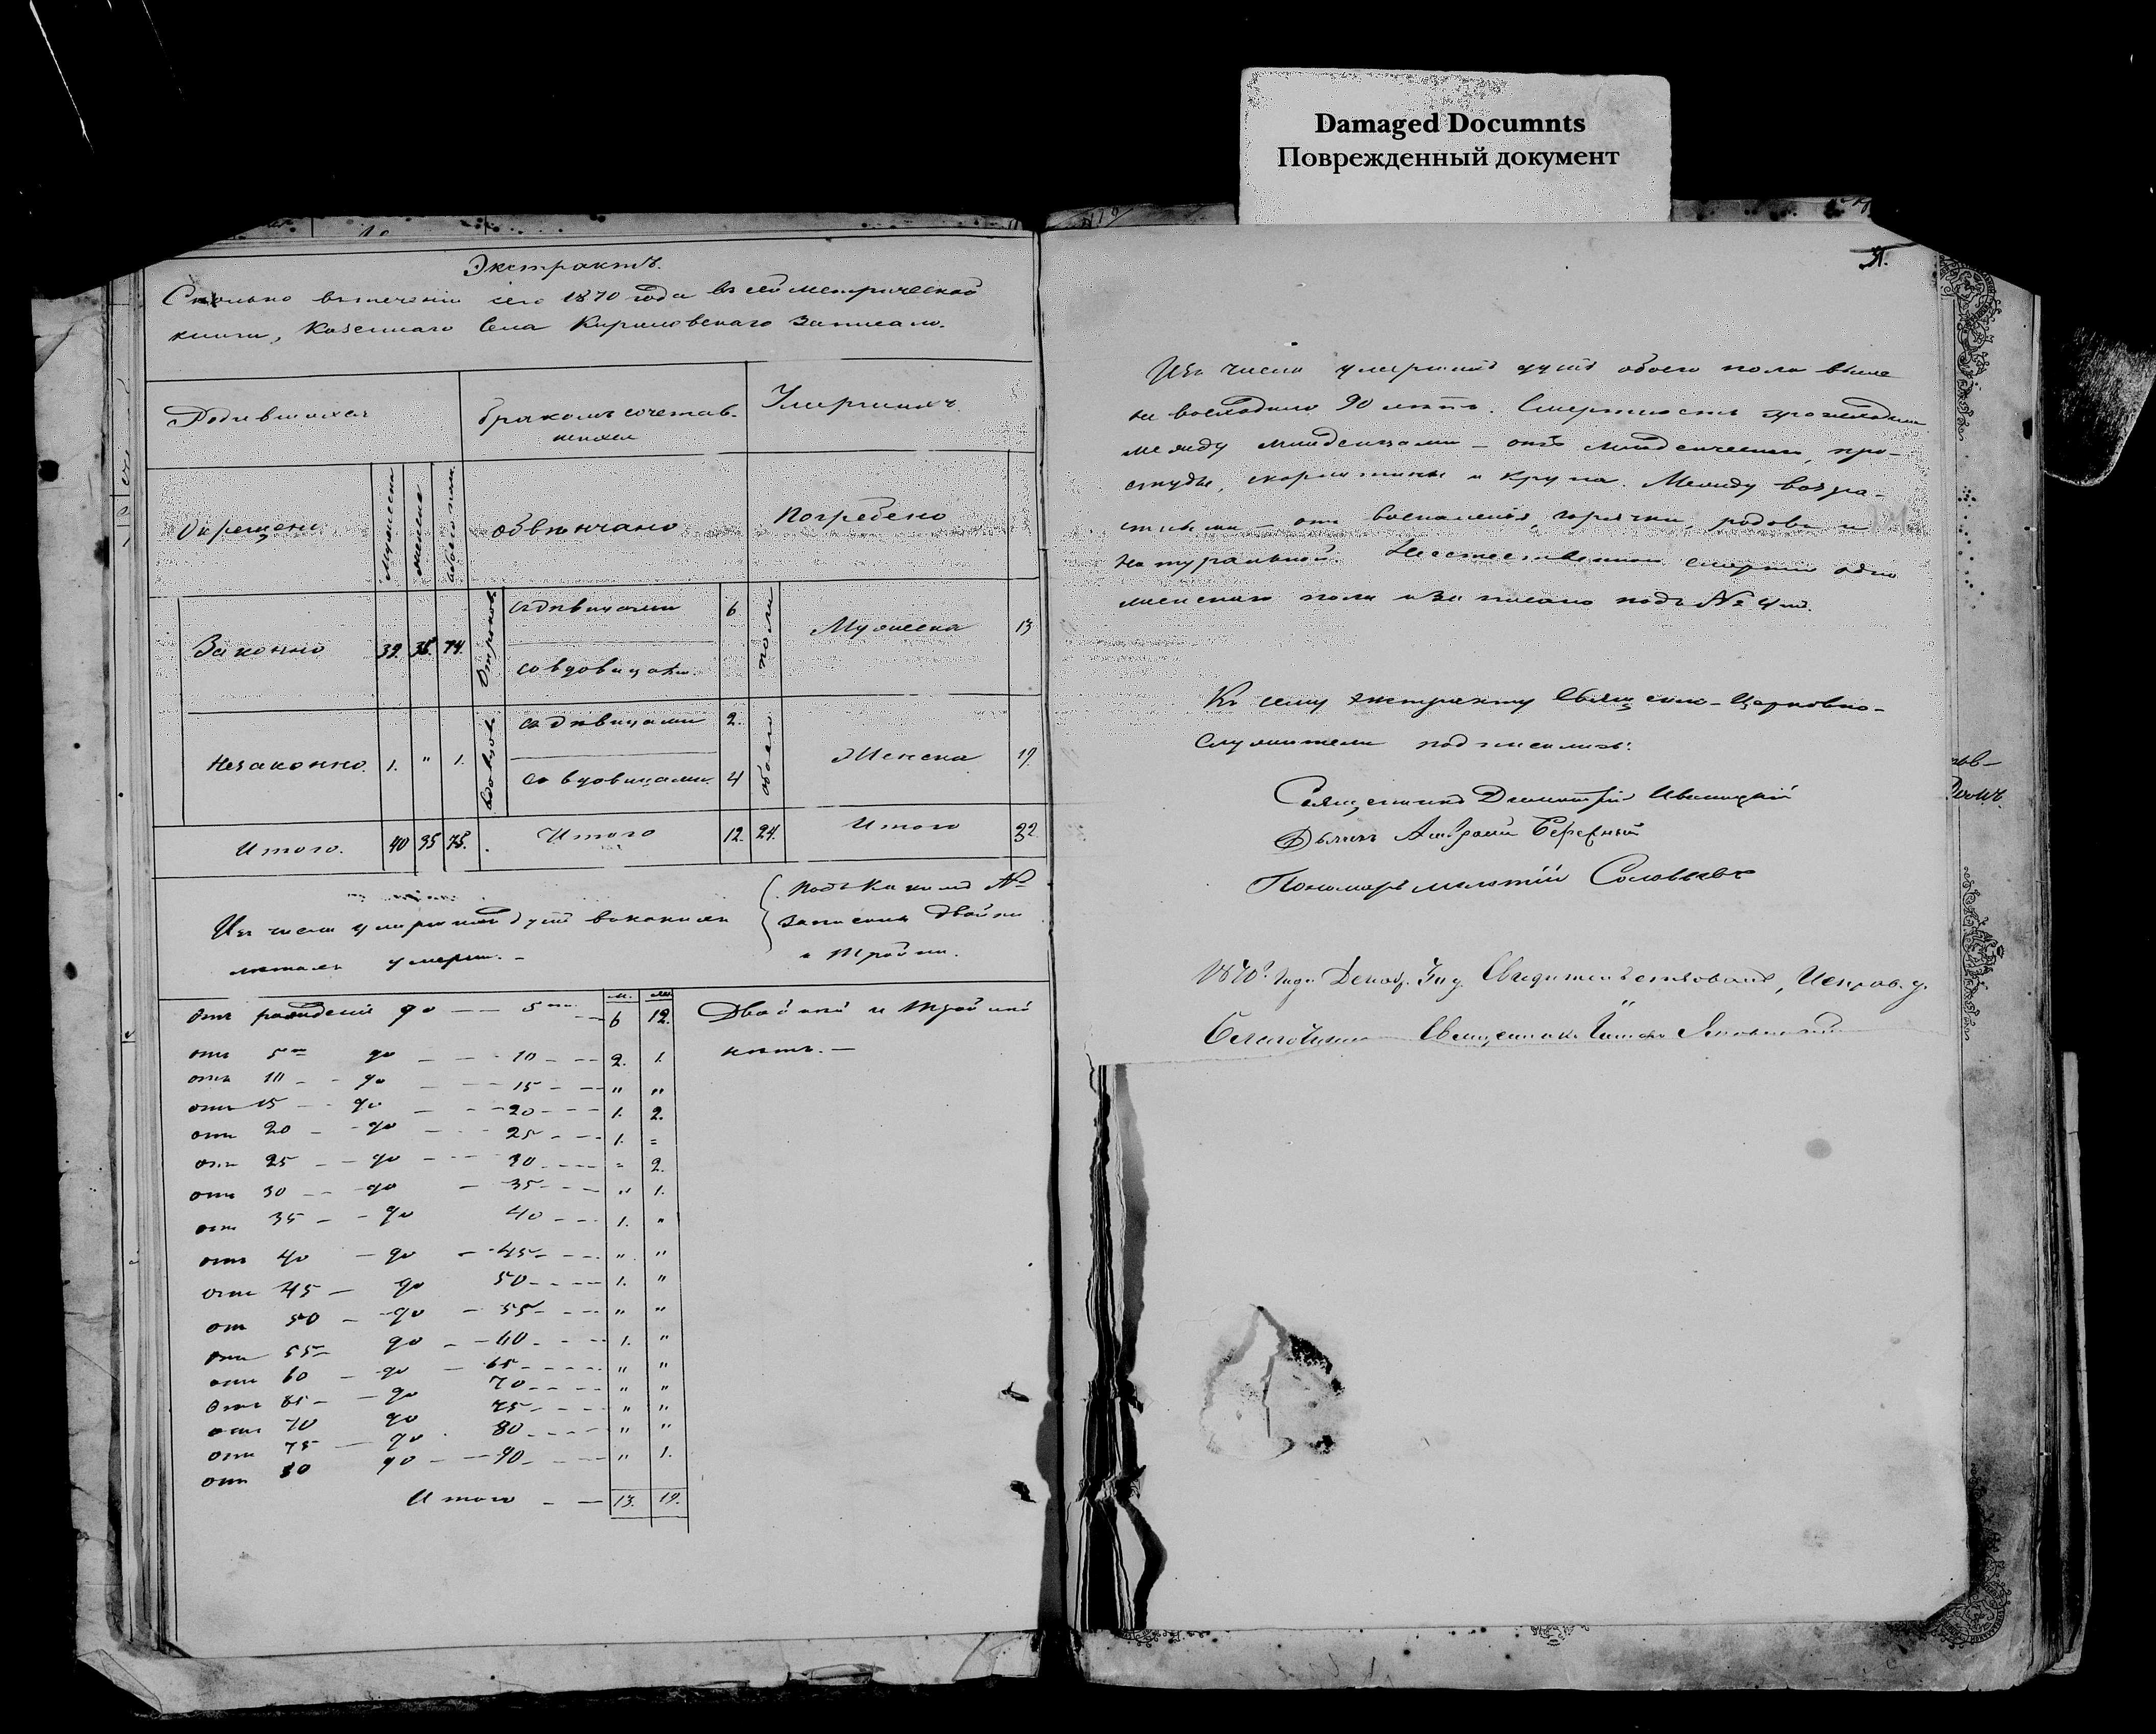 Damaged Documnts
Поврежденный документ
Экстрактъ.
Сколько втеченіи сего 1870 года въ сей метрической
книги, Казеннаго Села Кириловскаго записано.
Родившихся
бракомъ сочетав-
шихся
Умершихъ.
Окрещены
Мужеска
женска
обоего пола
обвѣнчано
Погребено
Законно 39. 35. 74.
Отроковъ
съ дѣвицами 6
со вдовицами.
обоего пола
Мужеска 13
Незаконно. 1. " 1.
вдовцовъ
съ дѣвицами 2.
со вдовицами. 4
Женска 19.
Итого. 40 35 75.
Итого 12. 24.
Итого 32.
Изъ числа умершихъ душъ въ какихъ
лѣтахъ умерли. -
Подъ какимъ №
записаны двойни
и тройни.
м. ж.
Отъ рожденія до — — 5 6 12.
отъ 5 до — — 10 — — 2. 1.
отъ 10 — - до — — 15 — — " "
отъ 15 — до — - 20 - - - 1. 2.
отъ 20 — - до — - 25 - - - 1. =
отъ 25 — — до — - 30 - - - = 2.
отъ 30 — — до — 35 - - - " 1.
отъ 35 — - до 40 - - - 1. "
отъ 40 — до — 45 - - - " "
отъ 45 — до 50 - - - 1. "
отъ 50 — до — 55 - - - " "
отъ 55 до — 60 - - - 1. "
отъ 60 — до — 65 - - - " "
отъ 65 — до 70 - - - " "
отъ 70 до 75 - - - " "
отъ 75 — до 80 - - - " "
отъ 80 до — 90 - - - " 1.
Итого — — 13. 19.
Двойни и тройни
нѣтъ. —
Изъ числа умершихъ душъ обоего пола выше
не восходило 90 лѣтъ. Смертность происходила
между младенцами — отъ младенческой, про-
студы, скарлатины и крупа. Между возра-
стными — отъ воспаленія, горячки, родовъ и
натуральной. Неестественной смерти одно
женскаго пола и записано подъ № 4мъ.
Къ сему экстракту Священно-Церковно-
служители подписались:
Священникъ Димитрій
Дьячокъ
Пономарь Соловьевъ
1870 года Декаб. Зид. Свидѣтельствовалъ, Исправ. д.
Благочиннаго Священникъ